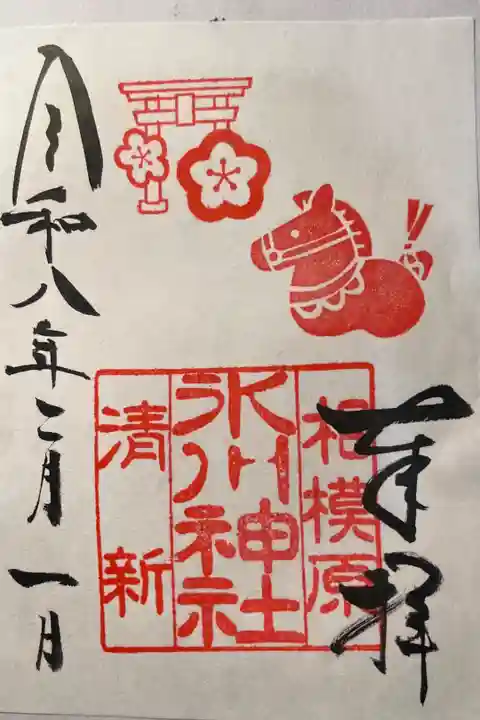 奉拝
相模原
氷川神社
清新
令和八年二月一日